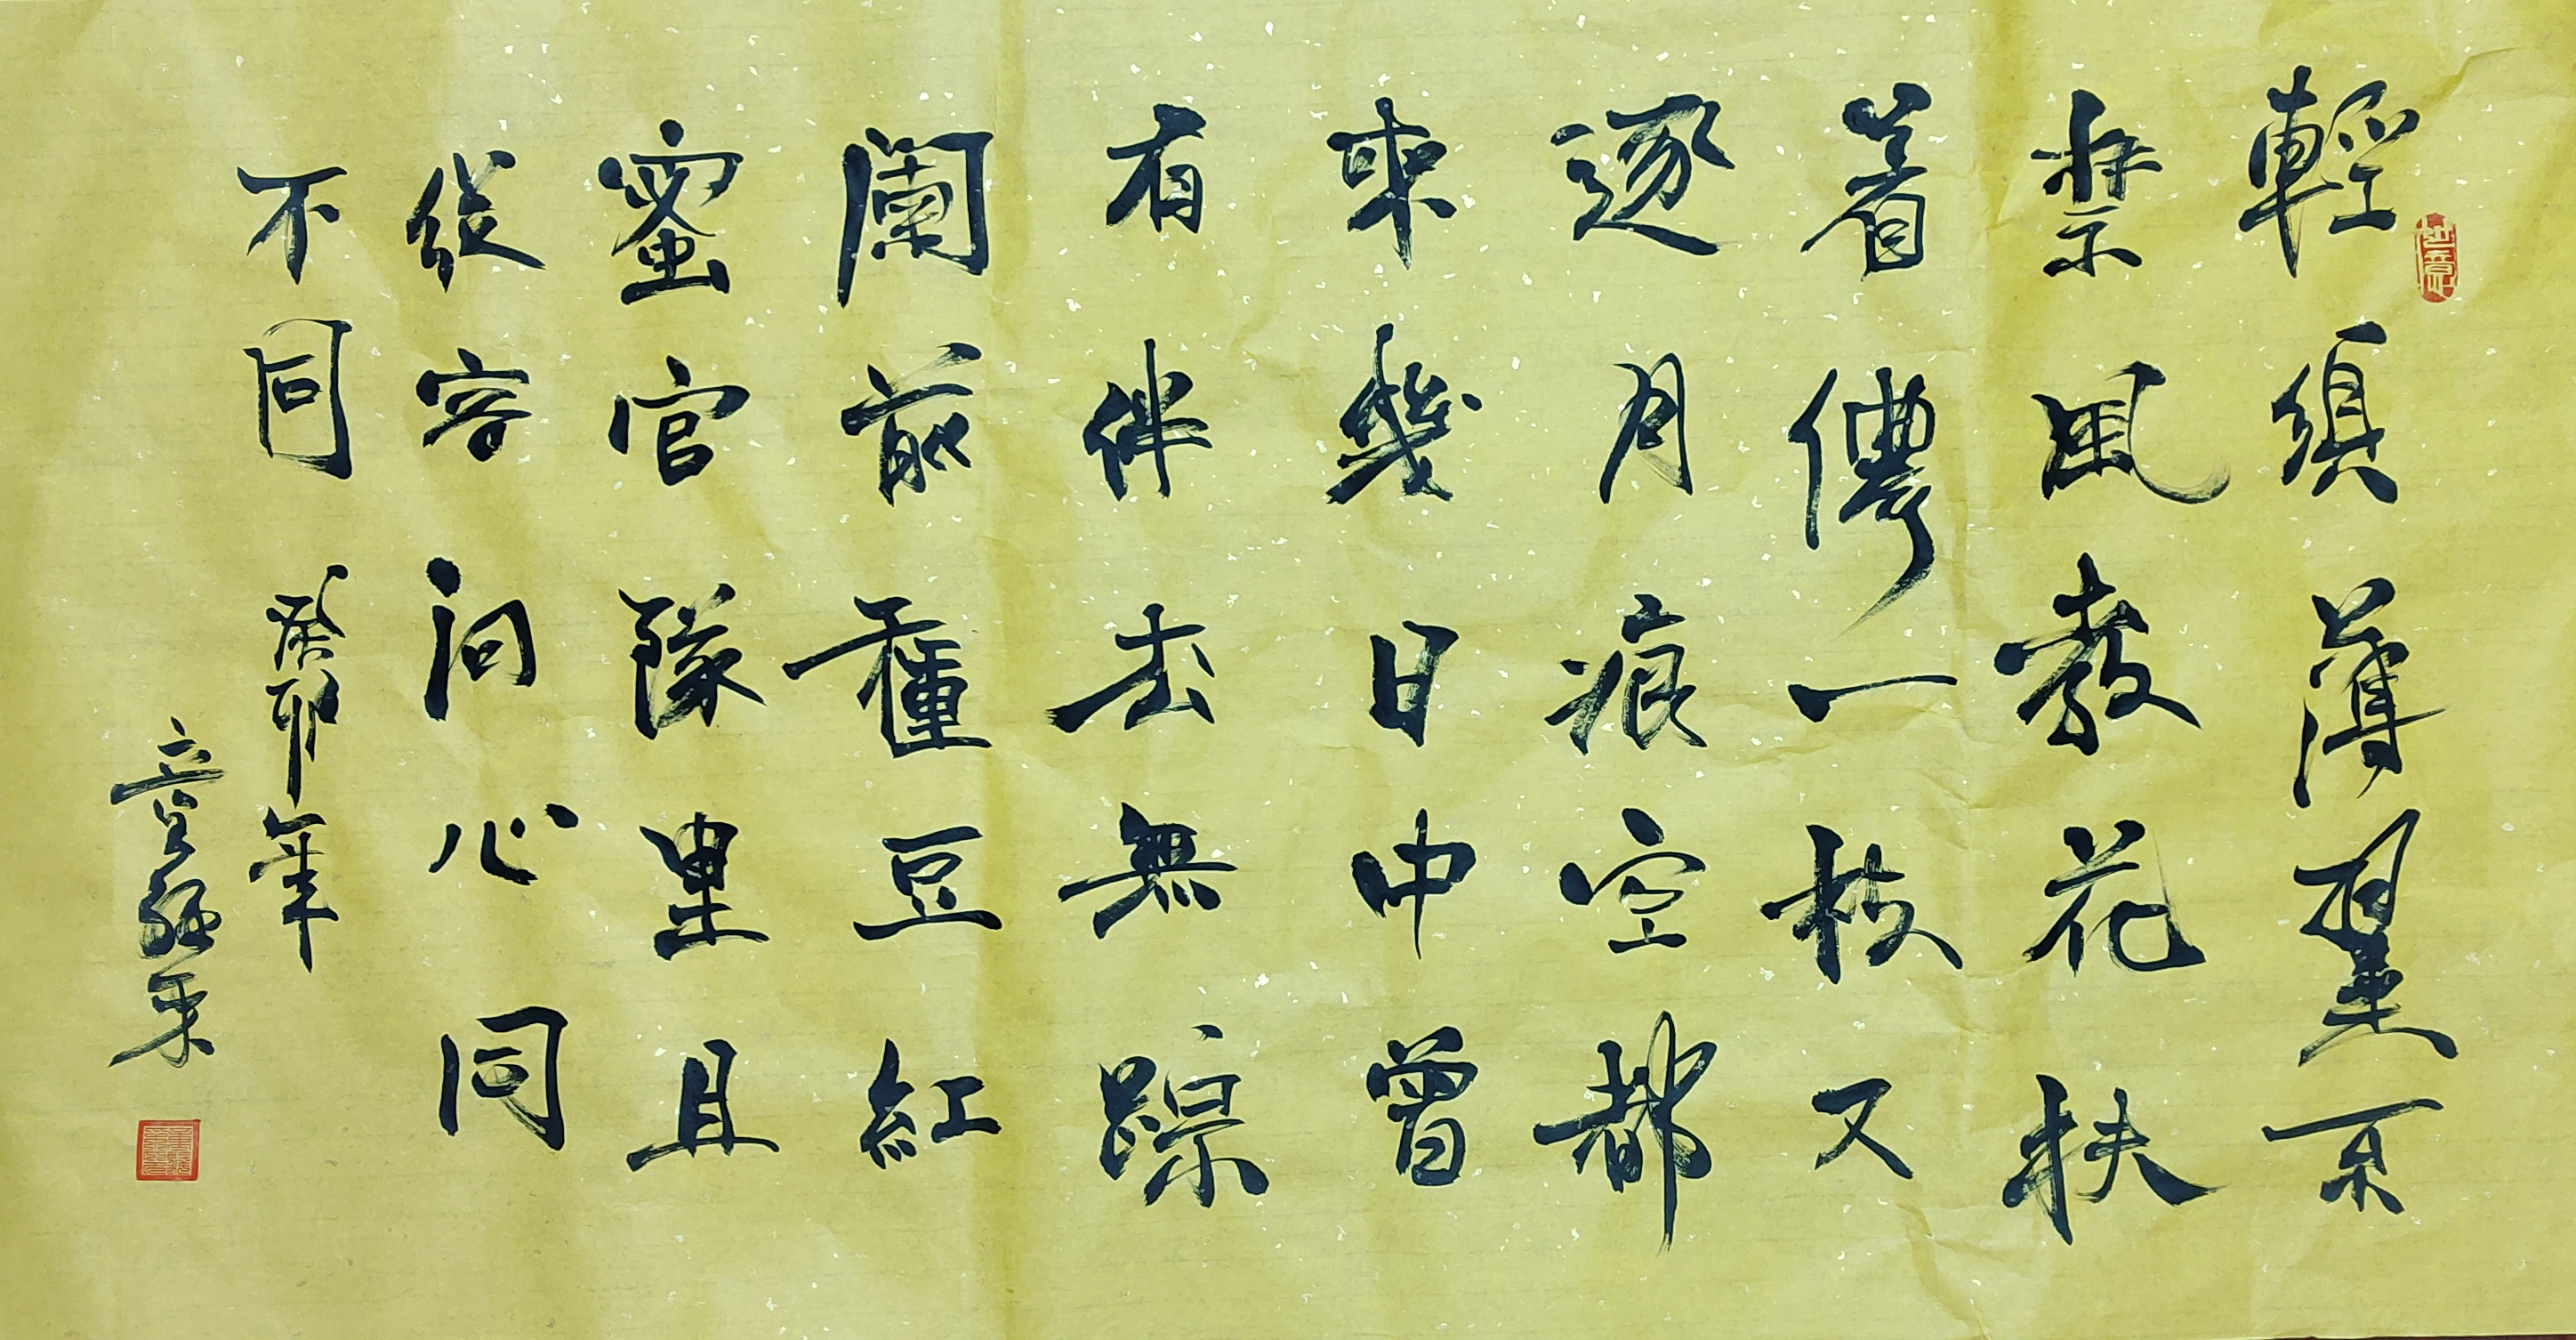 輕須薄翼不
禁風教花扶
着儜一枝又
逐月痕空都
來幾日中曾
有伴去無踪
闌前種豆紅
蜜官隊里且
從容問心同
不同
癸卯年